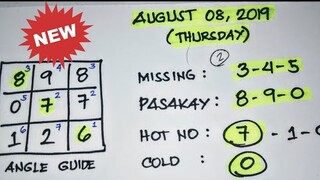 NEW
AUGUST 08, 2019
(THURSDAY)
2
8 3 9 4 8 3
0 5 7 2 7 2
1 6 2 7 6 1
ANGLE GUIDE
MISSING : 3-4-5
PASAKAY : 8-9-0
HOT NO : 7 - 1 - 0
COLD : 0